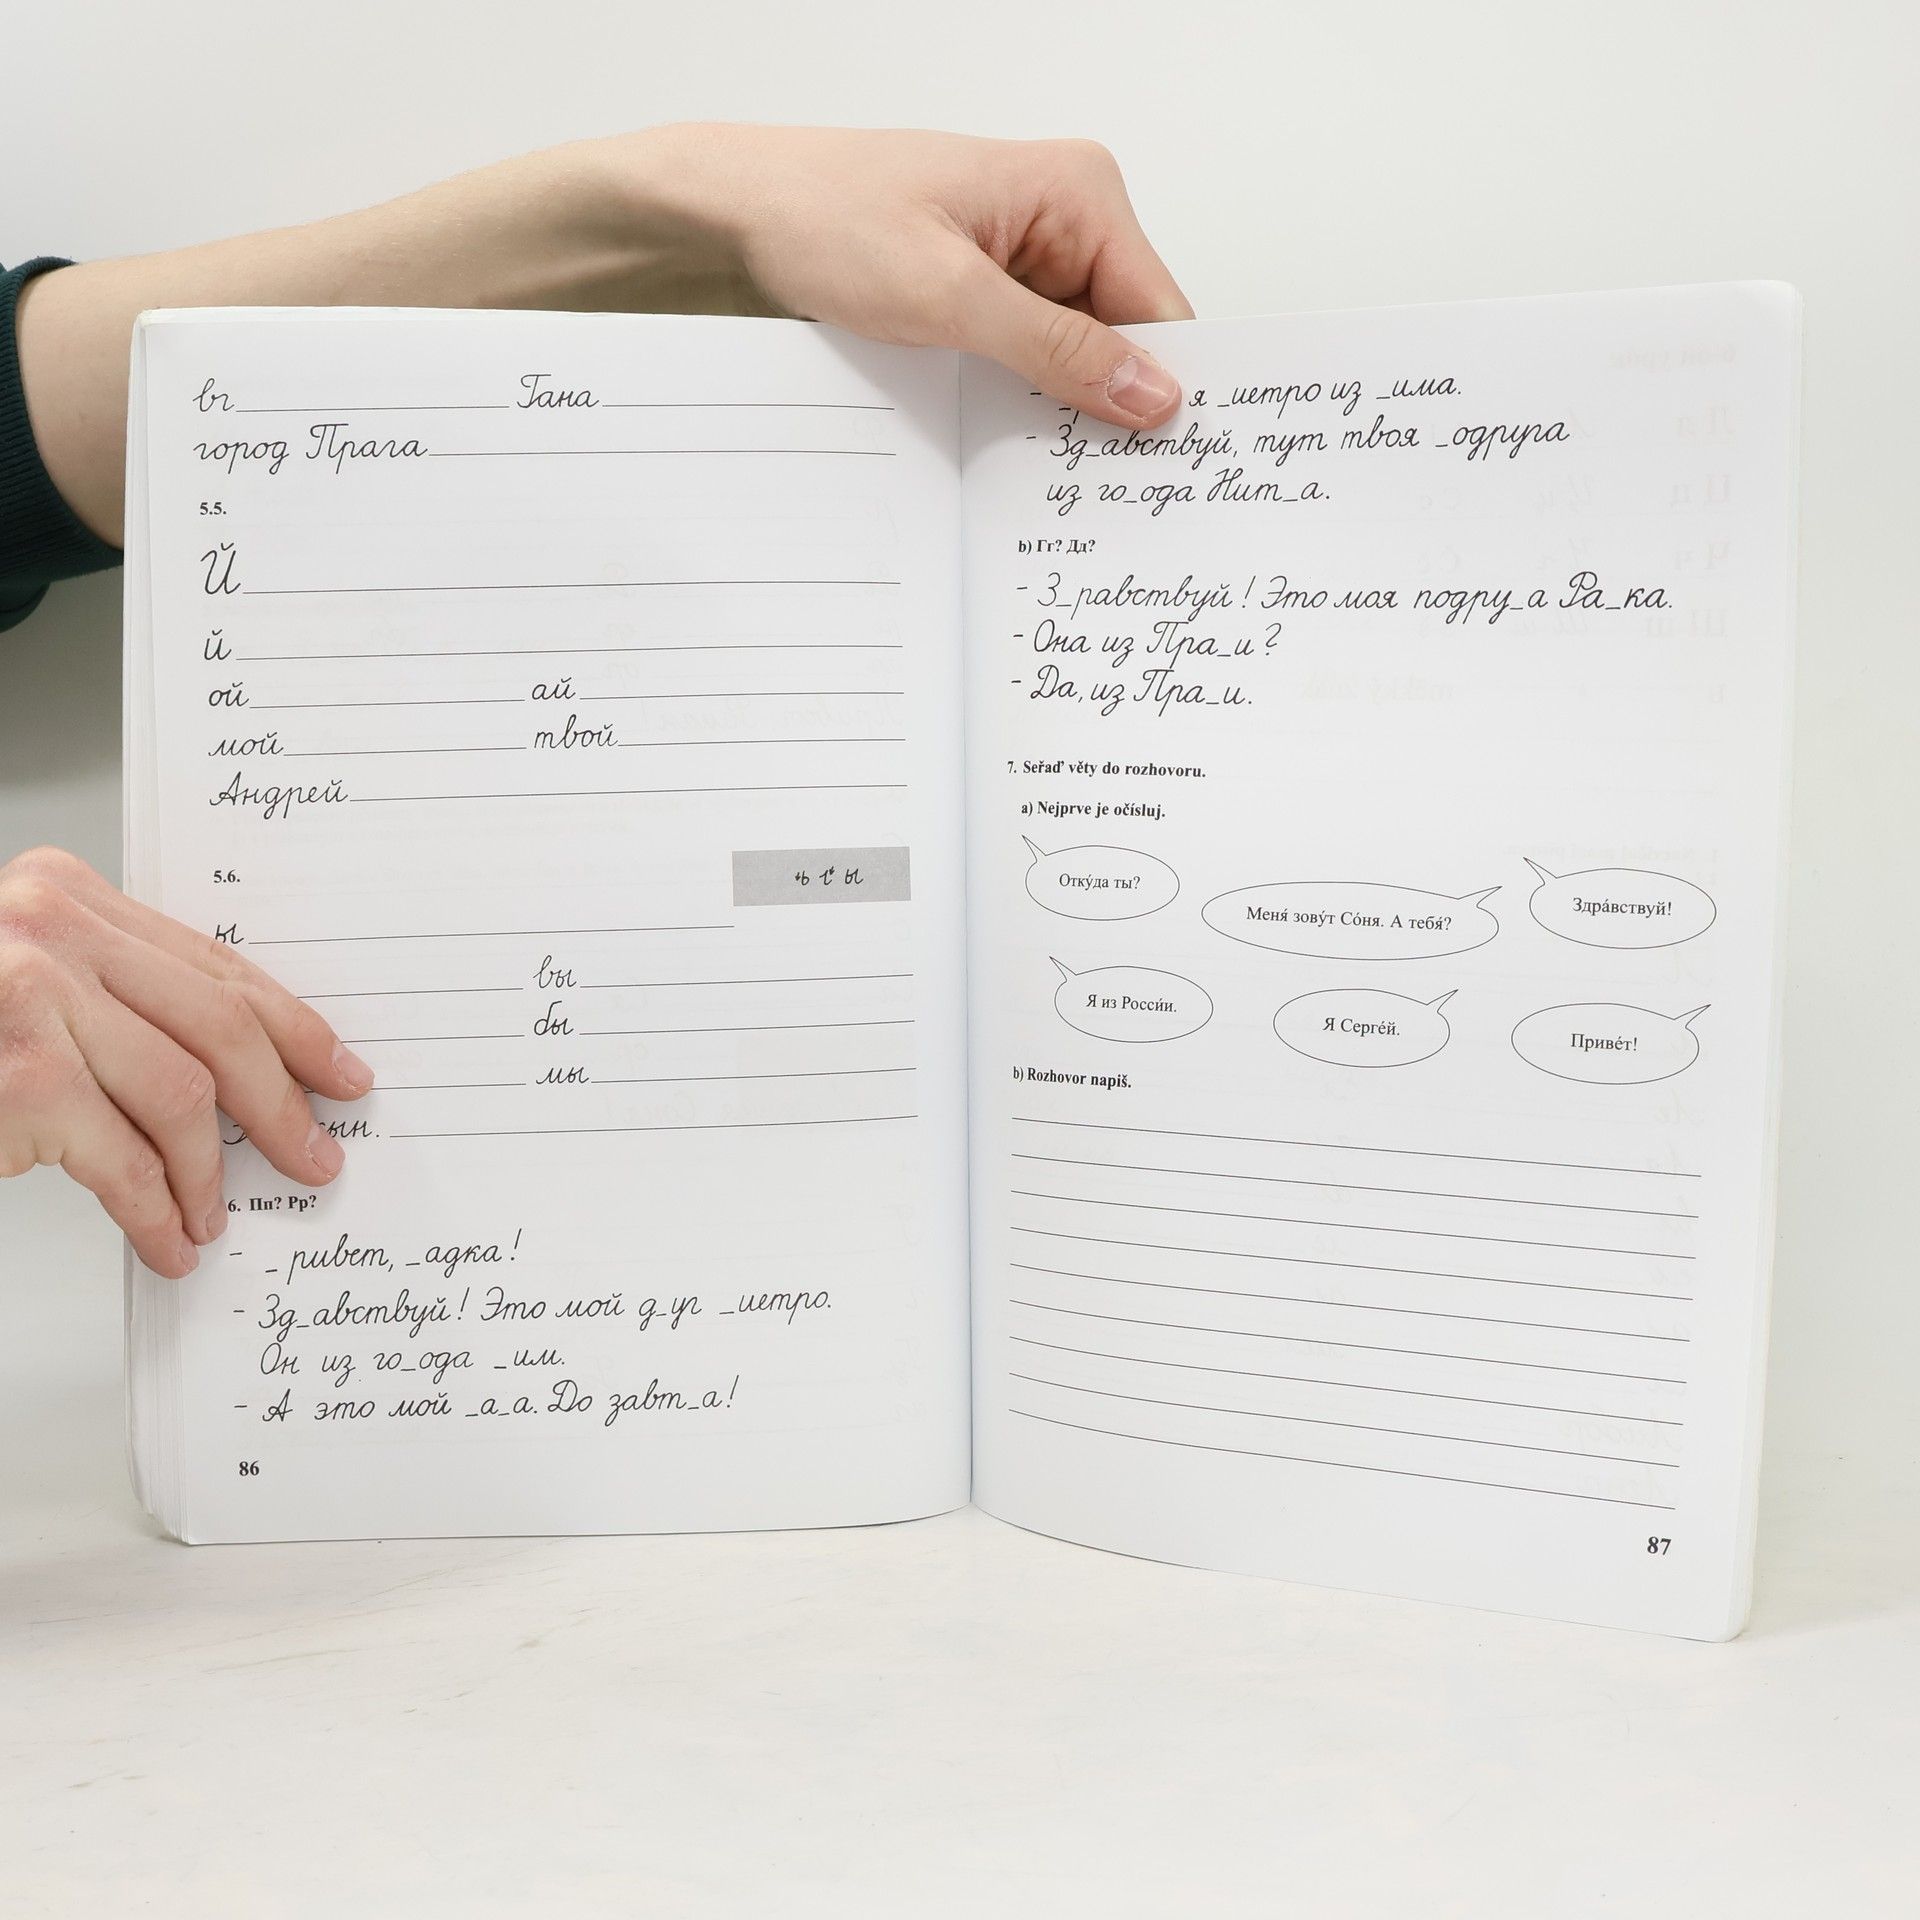 вг Гана
город Прага
5.5.
Й
й
ой ай
мой твой
Андрей
5.6.
ъ ь ы
ы
вы
бы
мы
сын.
6. Пп? Рр?
- _ ривет, _адка!
- Зд_авствуй! Это мой д_уг _иетро.
Он из го_ода _им.
- А это мой _а_а. До завт_а!
86
- я _иетро из _има.
- Зд_авствуй, тут твоя _одруга
из го_ода Нит_а.
b) Гг? Дд?
- З_равствуй! Это моя подру_а Ра_ка.
- Она из Пра_и?
- Да, из Пра_и.
7. Seřaď věty do rozhovoru.
a) Nejprve je očísluj.
Отку́да ты?
Меня́ зову́т Со́ня. А тебя́?
Здра́вствуй!
Я из Росси́и.
Я Серге́й.
Приве́т!
b) Rozhovor napiš.
87